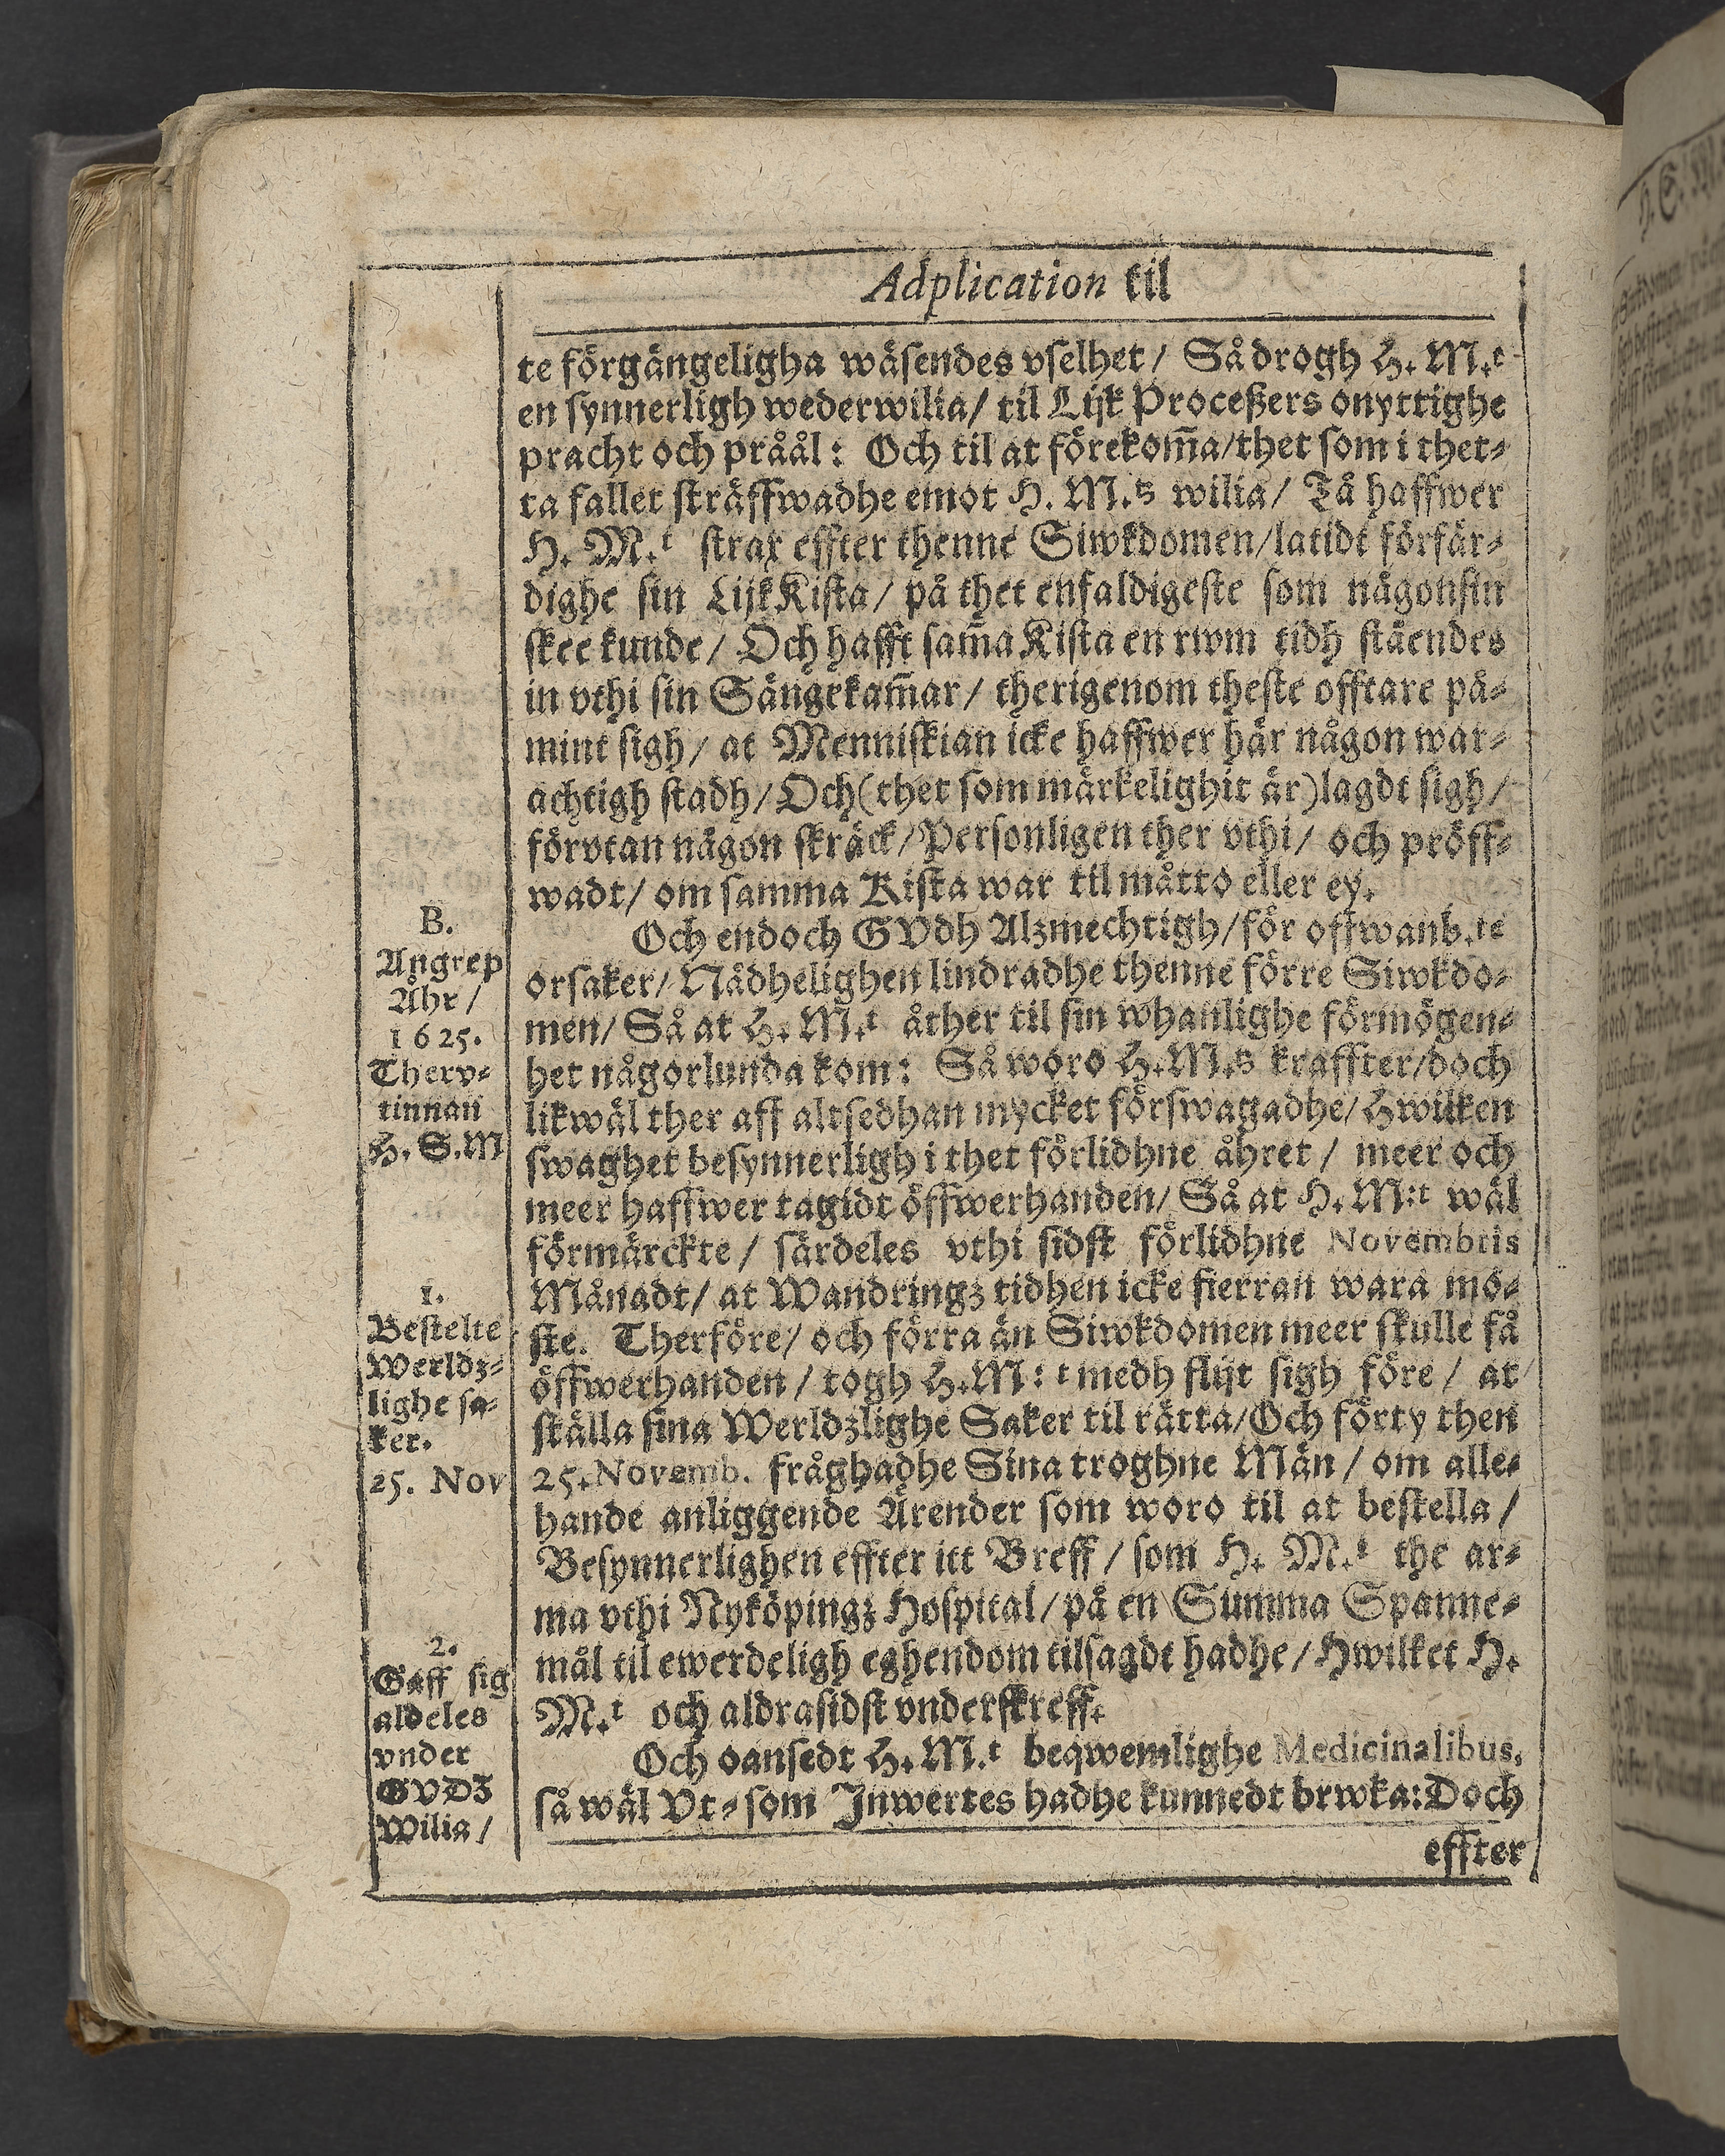 Adplication til
te förgängeligha wäsendes vselhet / Så drogh H. M.t
en synnerligh wederwilia / til Lijk Proceßers onyttighe
pracht och pråål: Och til at förekom̃a / thet som i thet-
ta fallet sträffwadhe emot H. M.ts wilia / Tå haffwer
H. M.t strax effter thenne Siwkdomen / latidt förfär-
dighe sin LijkKista / på thet enfaldigeste som någonsin
skee kunde / Och hafft sam̃a Kista en rwm tidh ståendes
in vthi sin Sängekam̃ar / therigenom theste offtare på-
mint sigh / at Menniskian icke haffwer här någon war-
achtigh stadh / Och (thet som märkelighit är) lagdt sigh /
förvtan någon skräck / Personligen ther vthi / och pröff-
wadt / om samma Kista war til måtto eller ey.
Och endoch GVdh Alzmechtigh / för offwanb.te
orsaker / Nådhelighen lindradhe thenne förre Siwkdo-
men / Så at H. M.t åther til sin whanlighe förmögen-
het någorlunda kom: Så woro H. M.ts kraffter / doch
likwäl ther aff altsedhan mycket förswagadhe / Hwilken
swaghet besynnerligh i thet förlidhne åhret / meer och
meer haffwer tagidt öffwerhanden / Så at H. M:t wäl
förmärckte / särdeles vthi sidst förlidhne Novembris
Månadt / at Wandringz tidhen icke fierran wara mö-
ste. Therföre / och förra än Siwkdomen meer skulle få
öffwerhanden / togh H. M:t medh flijt sigh före / at
ställa sina Werldzlighe Saker til rätta / Och förty then
25. Novemb. fråghadhe Sina troghne Män / om alle-
hande anliggende Ärender som woro til at bestella /
Besynnerlighen effter itt Breff / som H. M.t the ar-
ma vthi Nyköpingz Hospital / på en Summa Spanne-
mål til ewerdeligh eghendom tilsagdt hadhe / Hwilket H.
M.t och aldrasidst vnderskreff.
Och oansedt H. M.t beqwemlighe Medicinalibus,
så wäl Vt- som Inwertes hadhe kunnedt brwka: Doch
effter
B.
Angrep
Åhr /
1625.
Therv-
tinnan
H. S. M
1.
Bestelte
Werldz-
lighe sa-
ker.
25. Nov
2.
Gaff sig
aldeles
vnder
GVDZ
Wilia /